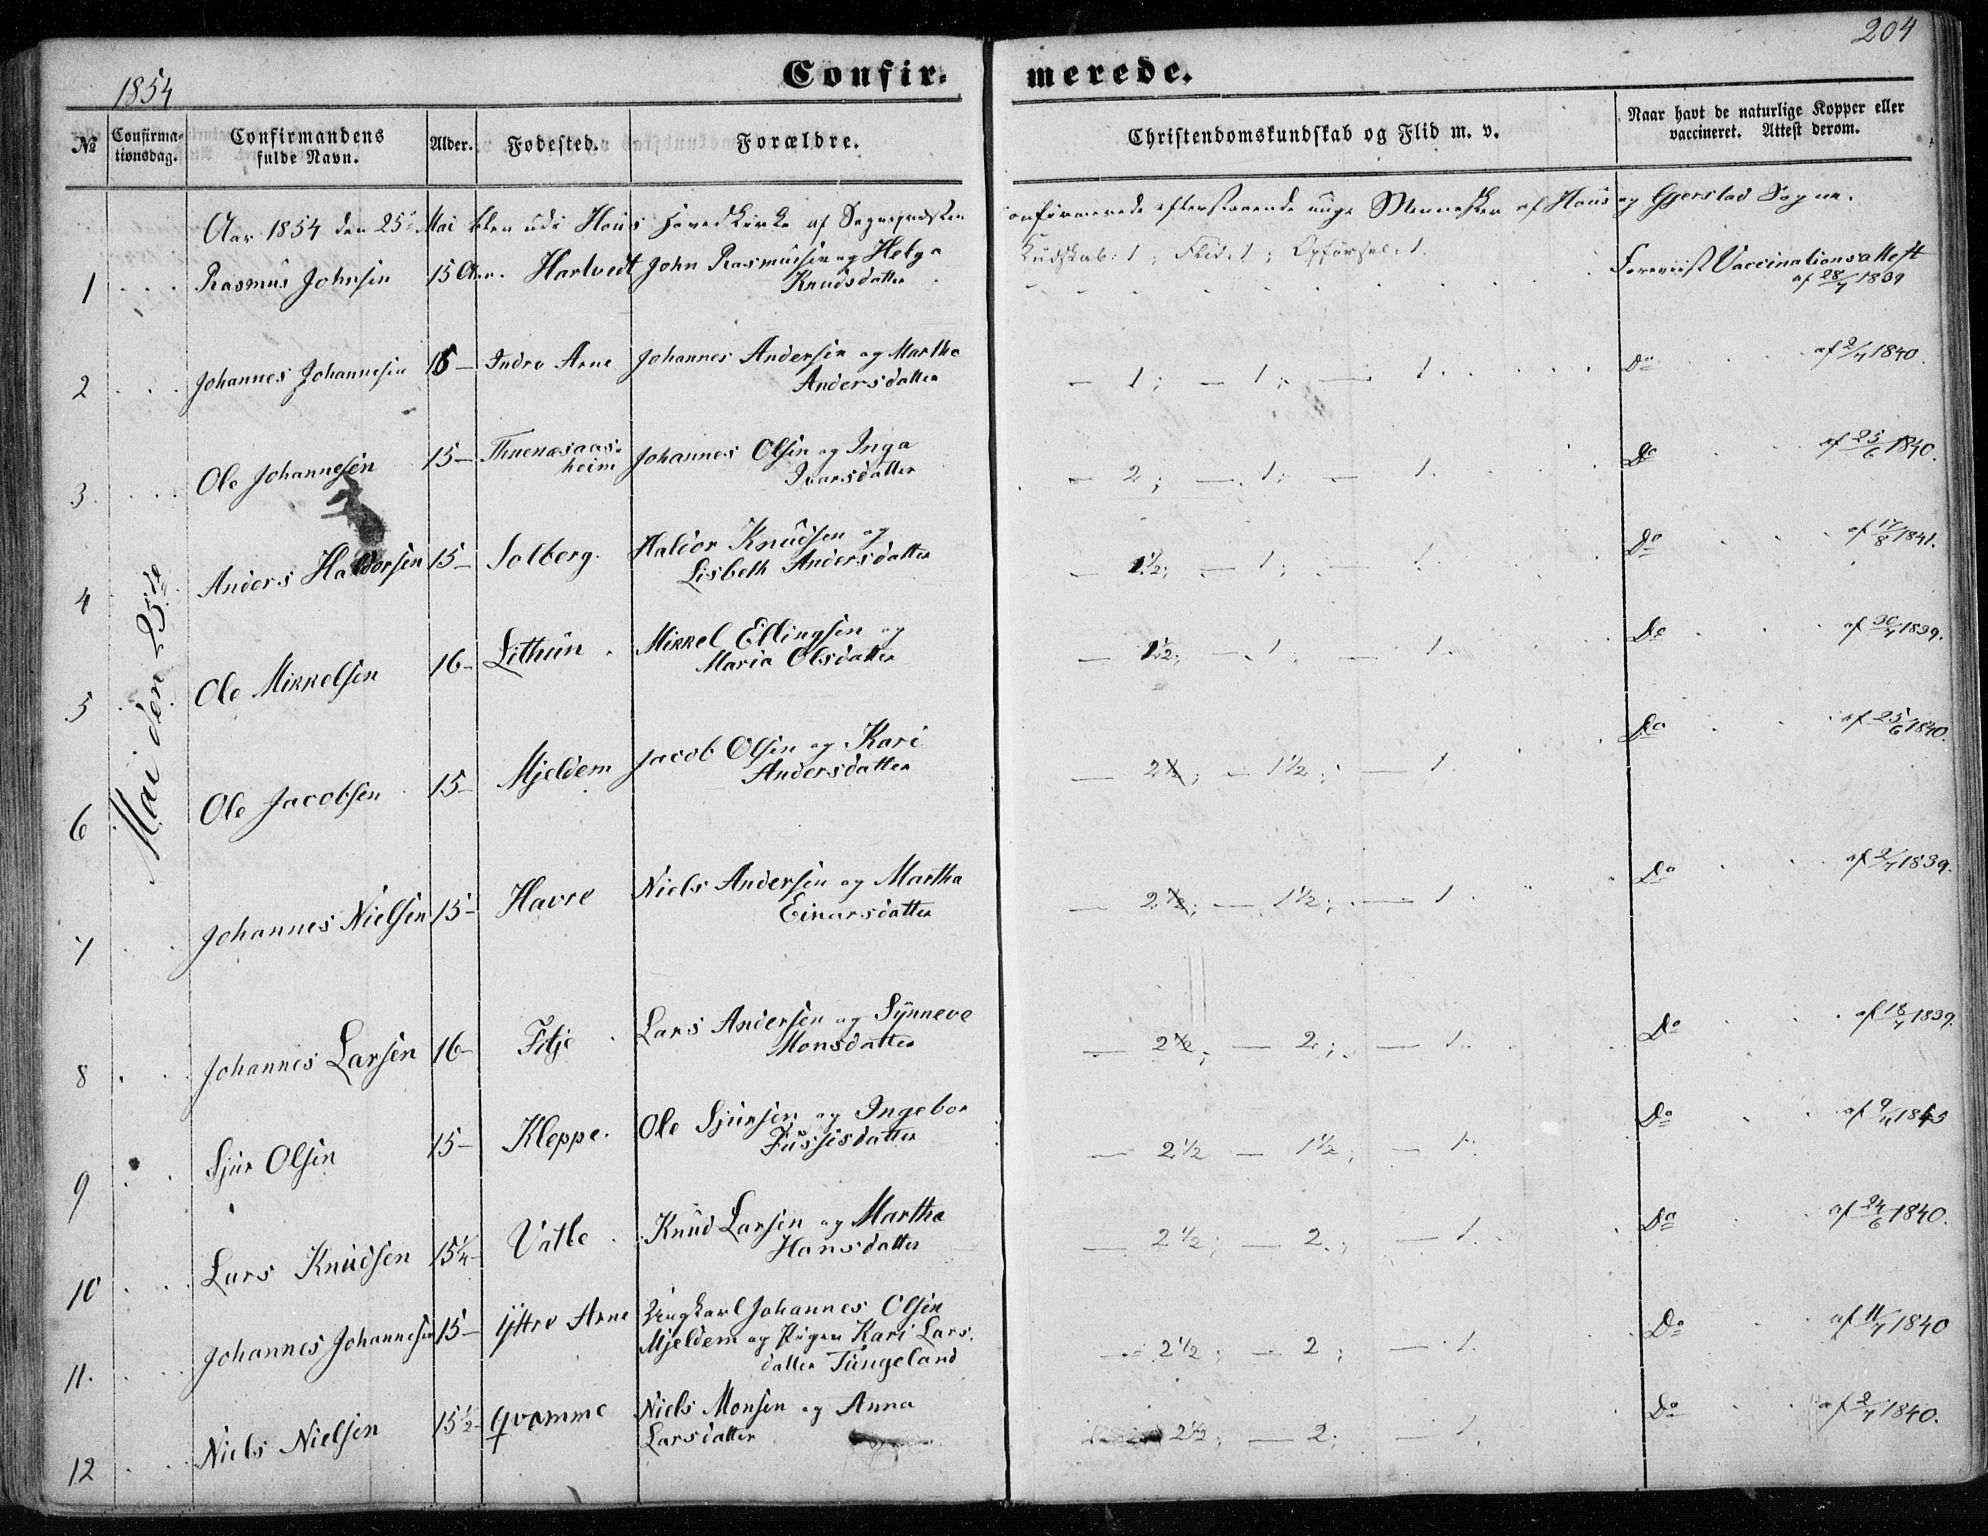 204
1854
Confir= merede.
№
Confirma-
tionsdag.
Confirmandens
fulde Navn.
Alder.
Fødested.
Forældre.
Christendomskundskab og Flid m. v.
Naar havt de naturlige Kopper eller
vaccineret. Attest derom.
Mai den 25de
Aar 1854 den 25de Mai blev udi Hous Hovedkirke af Sognepræsten confirmerede efterstaaende unge Mennesker af Hous og Gjerstad Sogne.
Kudskab: 1; Flid: 1; Opførsel: 1.
1 Rasmus Johnsen 15 Aar. Hartvedt John Rasmussen og Helga Foreviist Vaccinationsattest
Knudsdatter af 28/7 1839
2 Johannes Johannesen 16 — Indre Arne Johannes Andersen og Martha — 1; — 1; — 1. Do af 2/7 1840.
Andersdatter
3. Ole Johannesen 15 — Thuenæsaas= Johannes Olsen og Inga — 2; — 1; — 1. Do af 25/6 1840.
heim Ivarsdatter
4 Anders Haldorsen 15 — Solberg. Haldor Knudsen og — 1½; — 1; — 1. Do af 17/8 1841.
Lisbeth Andersdatter
5 Ole Mikkelsen 16 — Lithun. Mikkel Ellingsen og — 1½; — 1; — 1. Do af 30/7 1839.
Maria Olsdatter
6 Ole Jacobsen 15 — Mjeldem Jacob Olsen og Kari — 2½; — 1½; — 1. Do af 25/6 1840.
Andersdatter
7 Johannes Nielsen 15 — Havre Niels Andersen og Martha — 2½; — 1½; — 1. Do af 2/7 1839.
Einarsdatter
8 Johannes Larsen 16 — Fitje Lars Andersen og Synneve — 2½; — 2; — 1. Do af 18/7 1839.
Monsdatter
9 Sjur Olsen 15 — Kleppe. Ole Sjursen og Ingebor — 2½ — 1½; — 1. Do
Fussisdatter
10 Lars Knudsen 15¼ — Vatle Knud Larsen og Martha — 2½; — 2; — 1. Do af 24/6 1840.
Hansdatter
11. Johannes Johannesen 15 — Yttre Arne Ungkarl Johannes Olsen — 2½; — 2; — 1. Do af 11/7 1840
Mjeldem og Pigen Kari Lars.
datter Tungeland
12 Niels Nielsen 15½ — Qvamme Niels Monsen og Anna 2½; — 2; — 1. Do af 2/7 1840.
Larsdatter